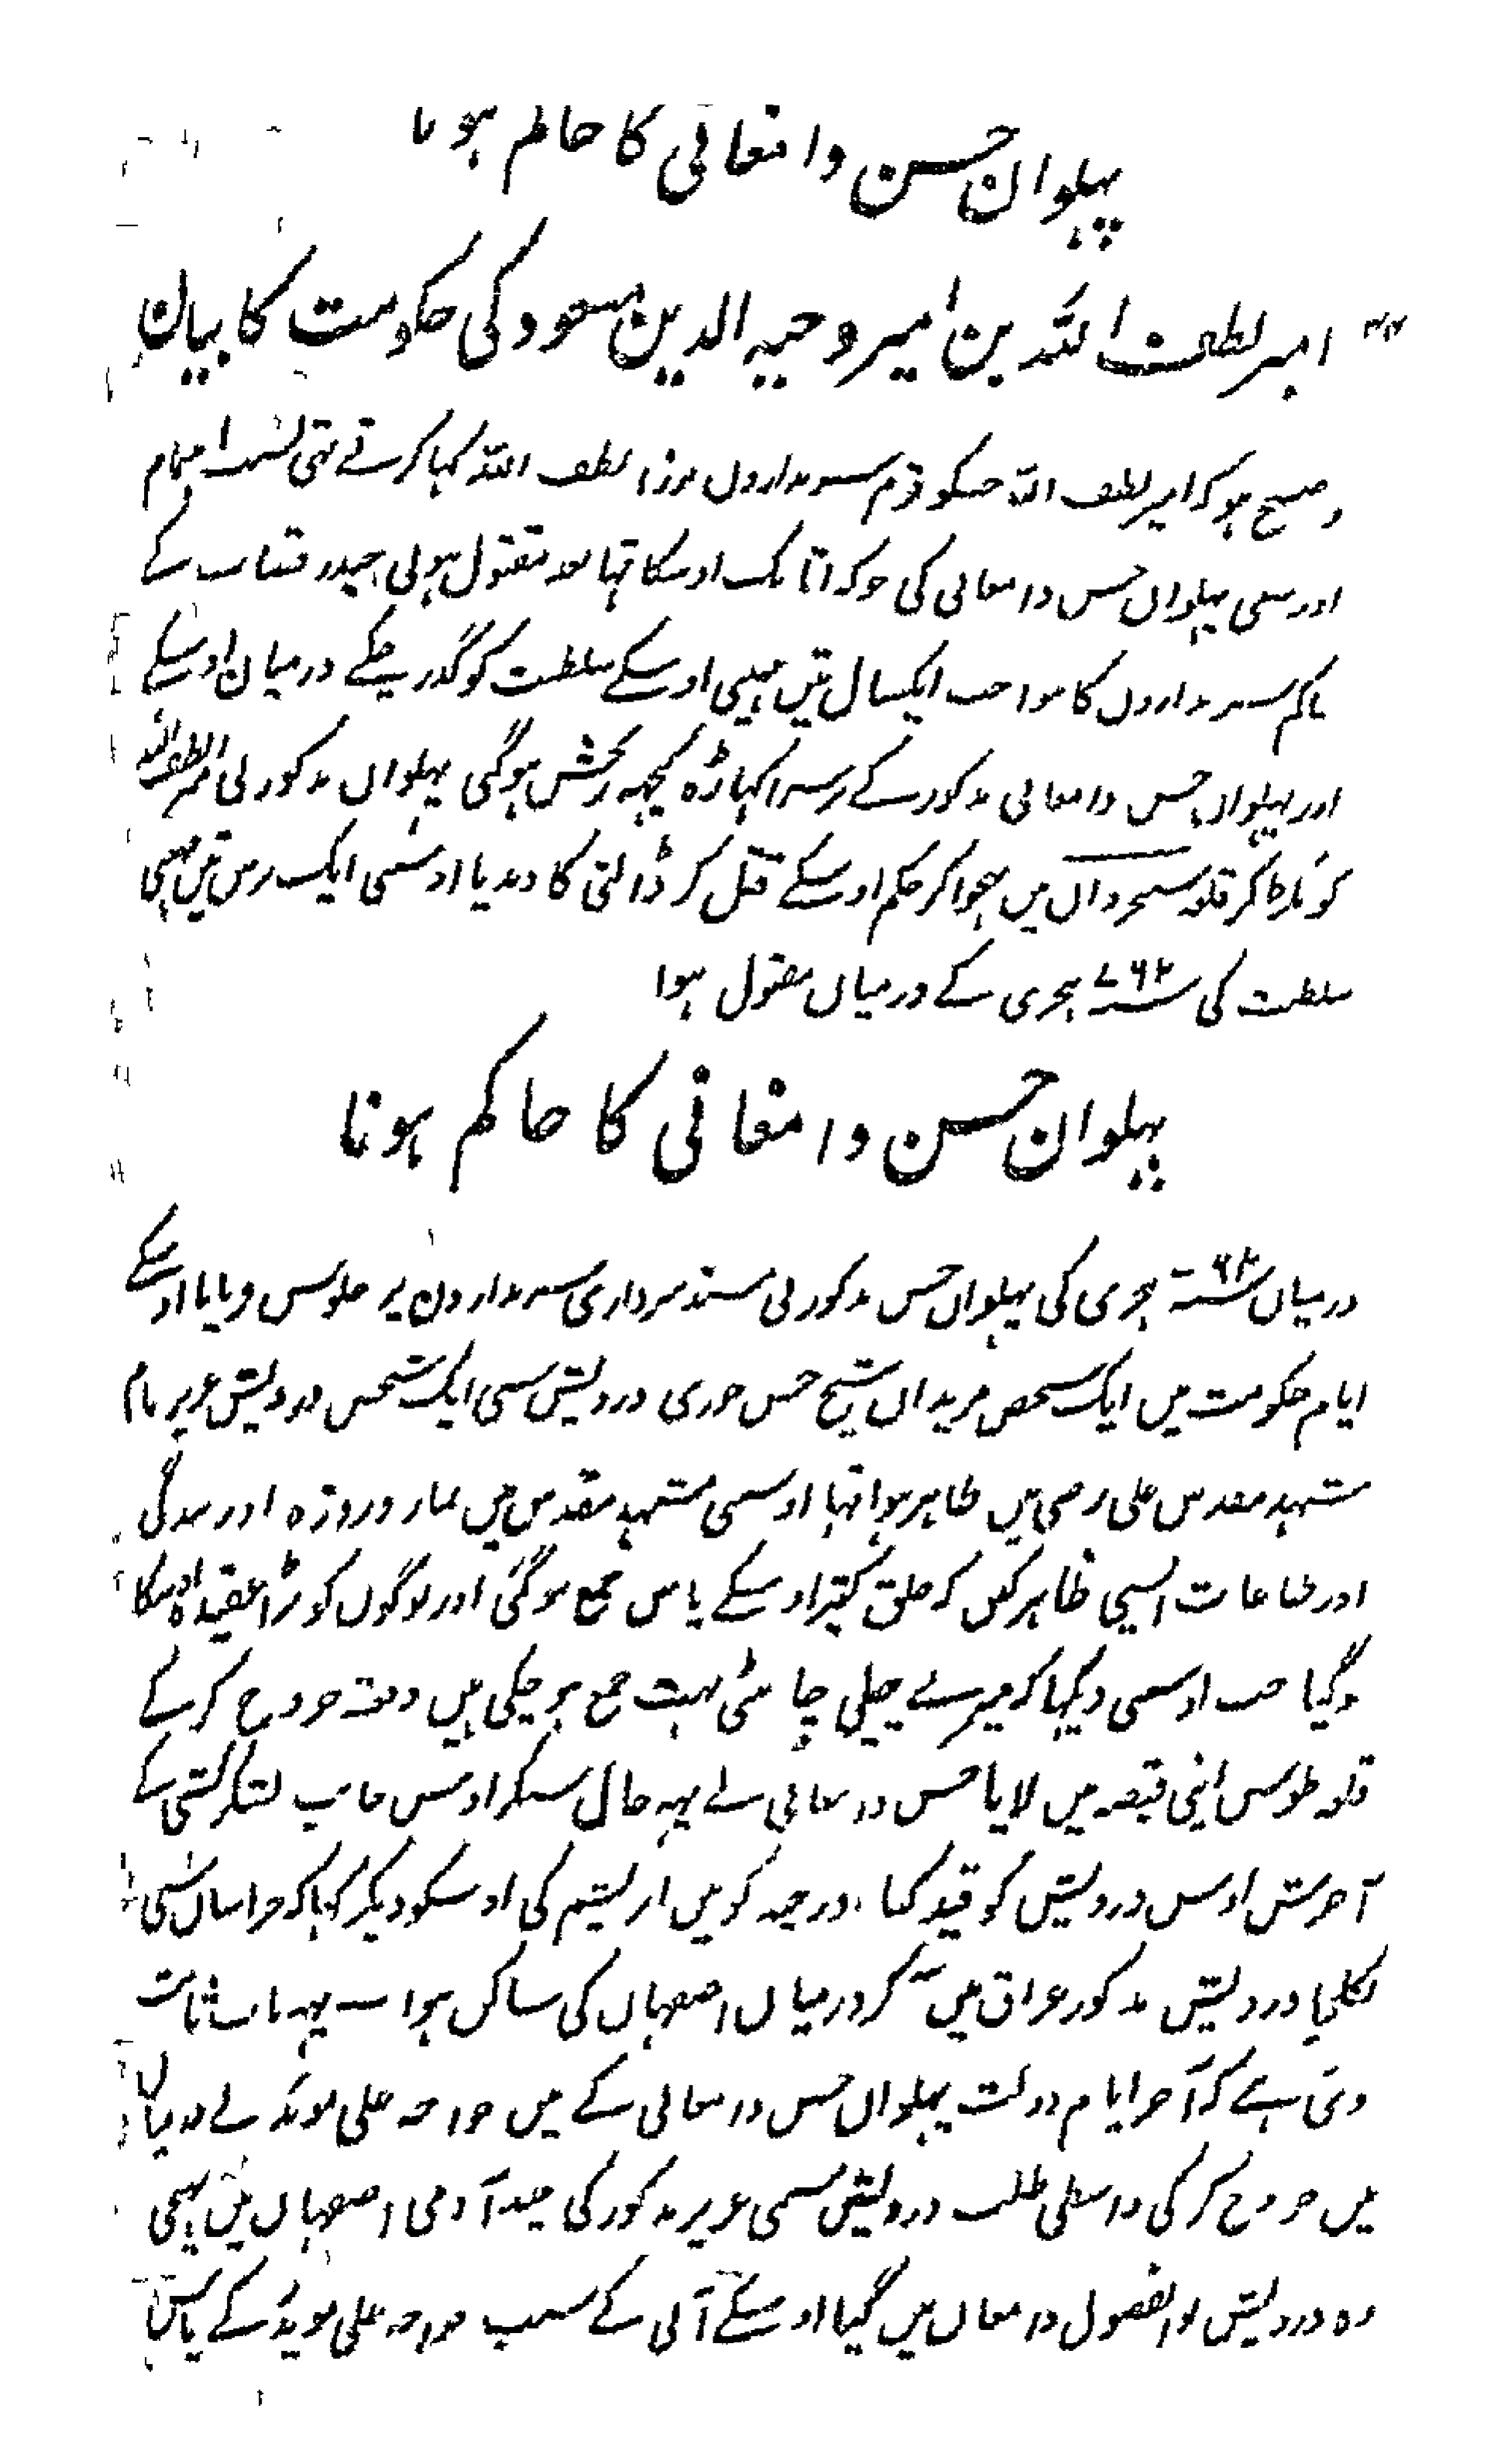 پہلوان حسن دامغانی کا حاکم ہونا
امیر لطف اللہ بن امیر وجیہ الدین مسعود کی حکومت کا بیان
واضح ہو کہ امیر لطف اللہ جسکو قوم سربداروں مرزا لطف اللہ کہا کرتے تہی
اور سعی پہلوان حسن دامغانی کی جو کہ اتابک اوسکا تہا بعد مقتول ہونی حیدر قصاب کے
حاکم سربداروں کا ہوا جب ایکسال تین مہینی اوسکے سلطنت کو گذر چکے درمیان اوسکے
اور پہلوان حسن دامغانی مذکور کے برسر اکہاڑہ کچہہ رنجش ہوگئی پہلوان مذکور نی لطف اللہ
کو قلعہ میں بہجوا کر حکم اوسکے قتل کر ڈالنی کا دیدیا اوسنی ایک برس تین مہینی
سلطنت کی سنہ ۷۶۲ ہجری کے درمیان مقتول ہوا
پہلوان حسن دامغانی کا حاکم ہونا
درمیان سنہ ہجری کی پہلوان حسن مذکور نی مسند سرداری سربداروں پر جلوس فرمایا اوسکے
ایام حکومت میں ایک شخص مریدان شیخ حسن جوری درویش سی ایک شخص درویش عزیز نام
مشہد مقدس علی رضی میں ظاہر ہوا تہا اوسنی مشہد مقدس میں نماز و روزہ اور بندگی
اور طاعات ایسی ظاہر کیں کہ خلق کثیر اوسکے پاس جمع ہوگئی اور لوگوں کو بڑا عقیدہ اوسکا
ہوگیا جب اوسنی دیکہا کہ میرے چیلی چانٹی بہت جمع ہو چکی ہیں دفعۃ خروج کر کے
قلعہ طوس اپنی قبضہ میں لایا حسن دامغانی نے یہہ حال سنکر اوس جانب لشکر کشی کے
آخرش اوس درویش کو قید کیا اور چند گونیں ابریشم کی اوسکو دیکر کہا کہ خراسان سی
نکلجا درویش مذکور عراق میں آ کر درمیان اصفہان کی ساکن ہوا یہہ بات ثابت
ہوئی ہے کہ آخر ایام دولت پہلوان حسن دامغانی کے میں خواجہ علی موید نے
میں خروج کر کی واسطی طلب درویش مسمی عزیز مذکور کی چند آدمی اصفہان میں بہیجی
وہ درویش بوالفضول دامغان میں گیا اوسکے آنی کے سبب خواجہ علی موید کے پاس